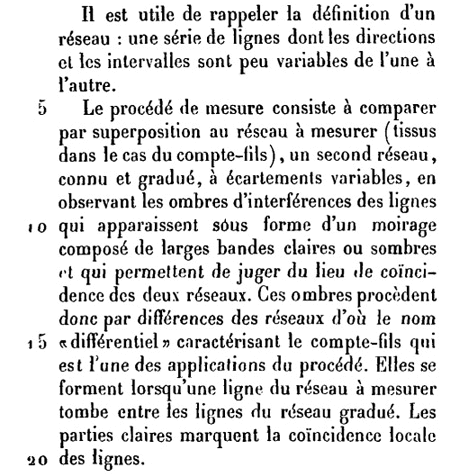 Il est utile de rappeler la définition d'un
réseau : une série de lignes dont les directions
et les intervalles sont peu variables de l'une à
l'autre.
5 Le procédé de mesure consiste à comparer
par superposition au réseau à mesurer (tissus
dans le cas du compte-fils), un second réseau,
connu et gradué, à écartements variables, en
observant les ombres d'interférences des lignes
10 qui apparaissent sous forme d'un moirage
composé de larges bandes claires ou sombres
et qui permettent de juger du lieu de coïnci-
dence des deux réseaux. Ces ombres procèdent
donc par différences des réseaux d'où le nom
15 «différentiel» caractérisant le compte-fils qui
est l'une des applications du procédé. Elles se
forment lorsqu'une ligne du réseau à mesurer
tombe entre les lignes du réseau gradué. Les
parties claires marquent la coïncidence locale
20 des lignes.